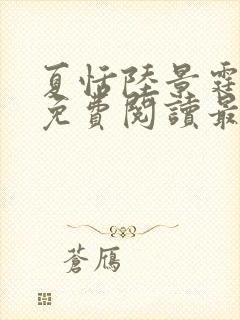 夏恬陸景霆
免費閱讀最
蒼鴈